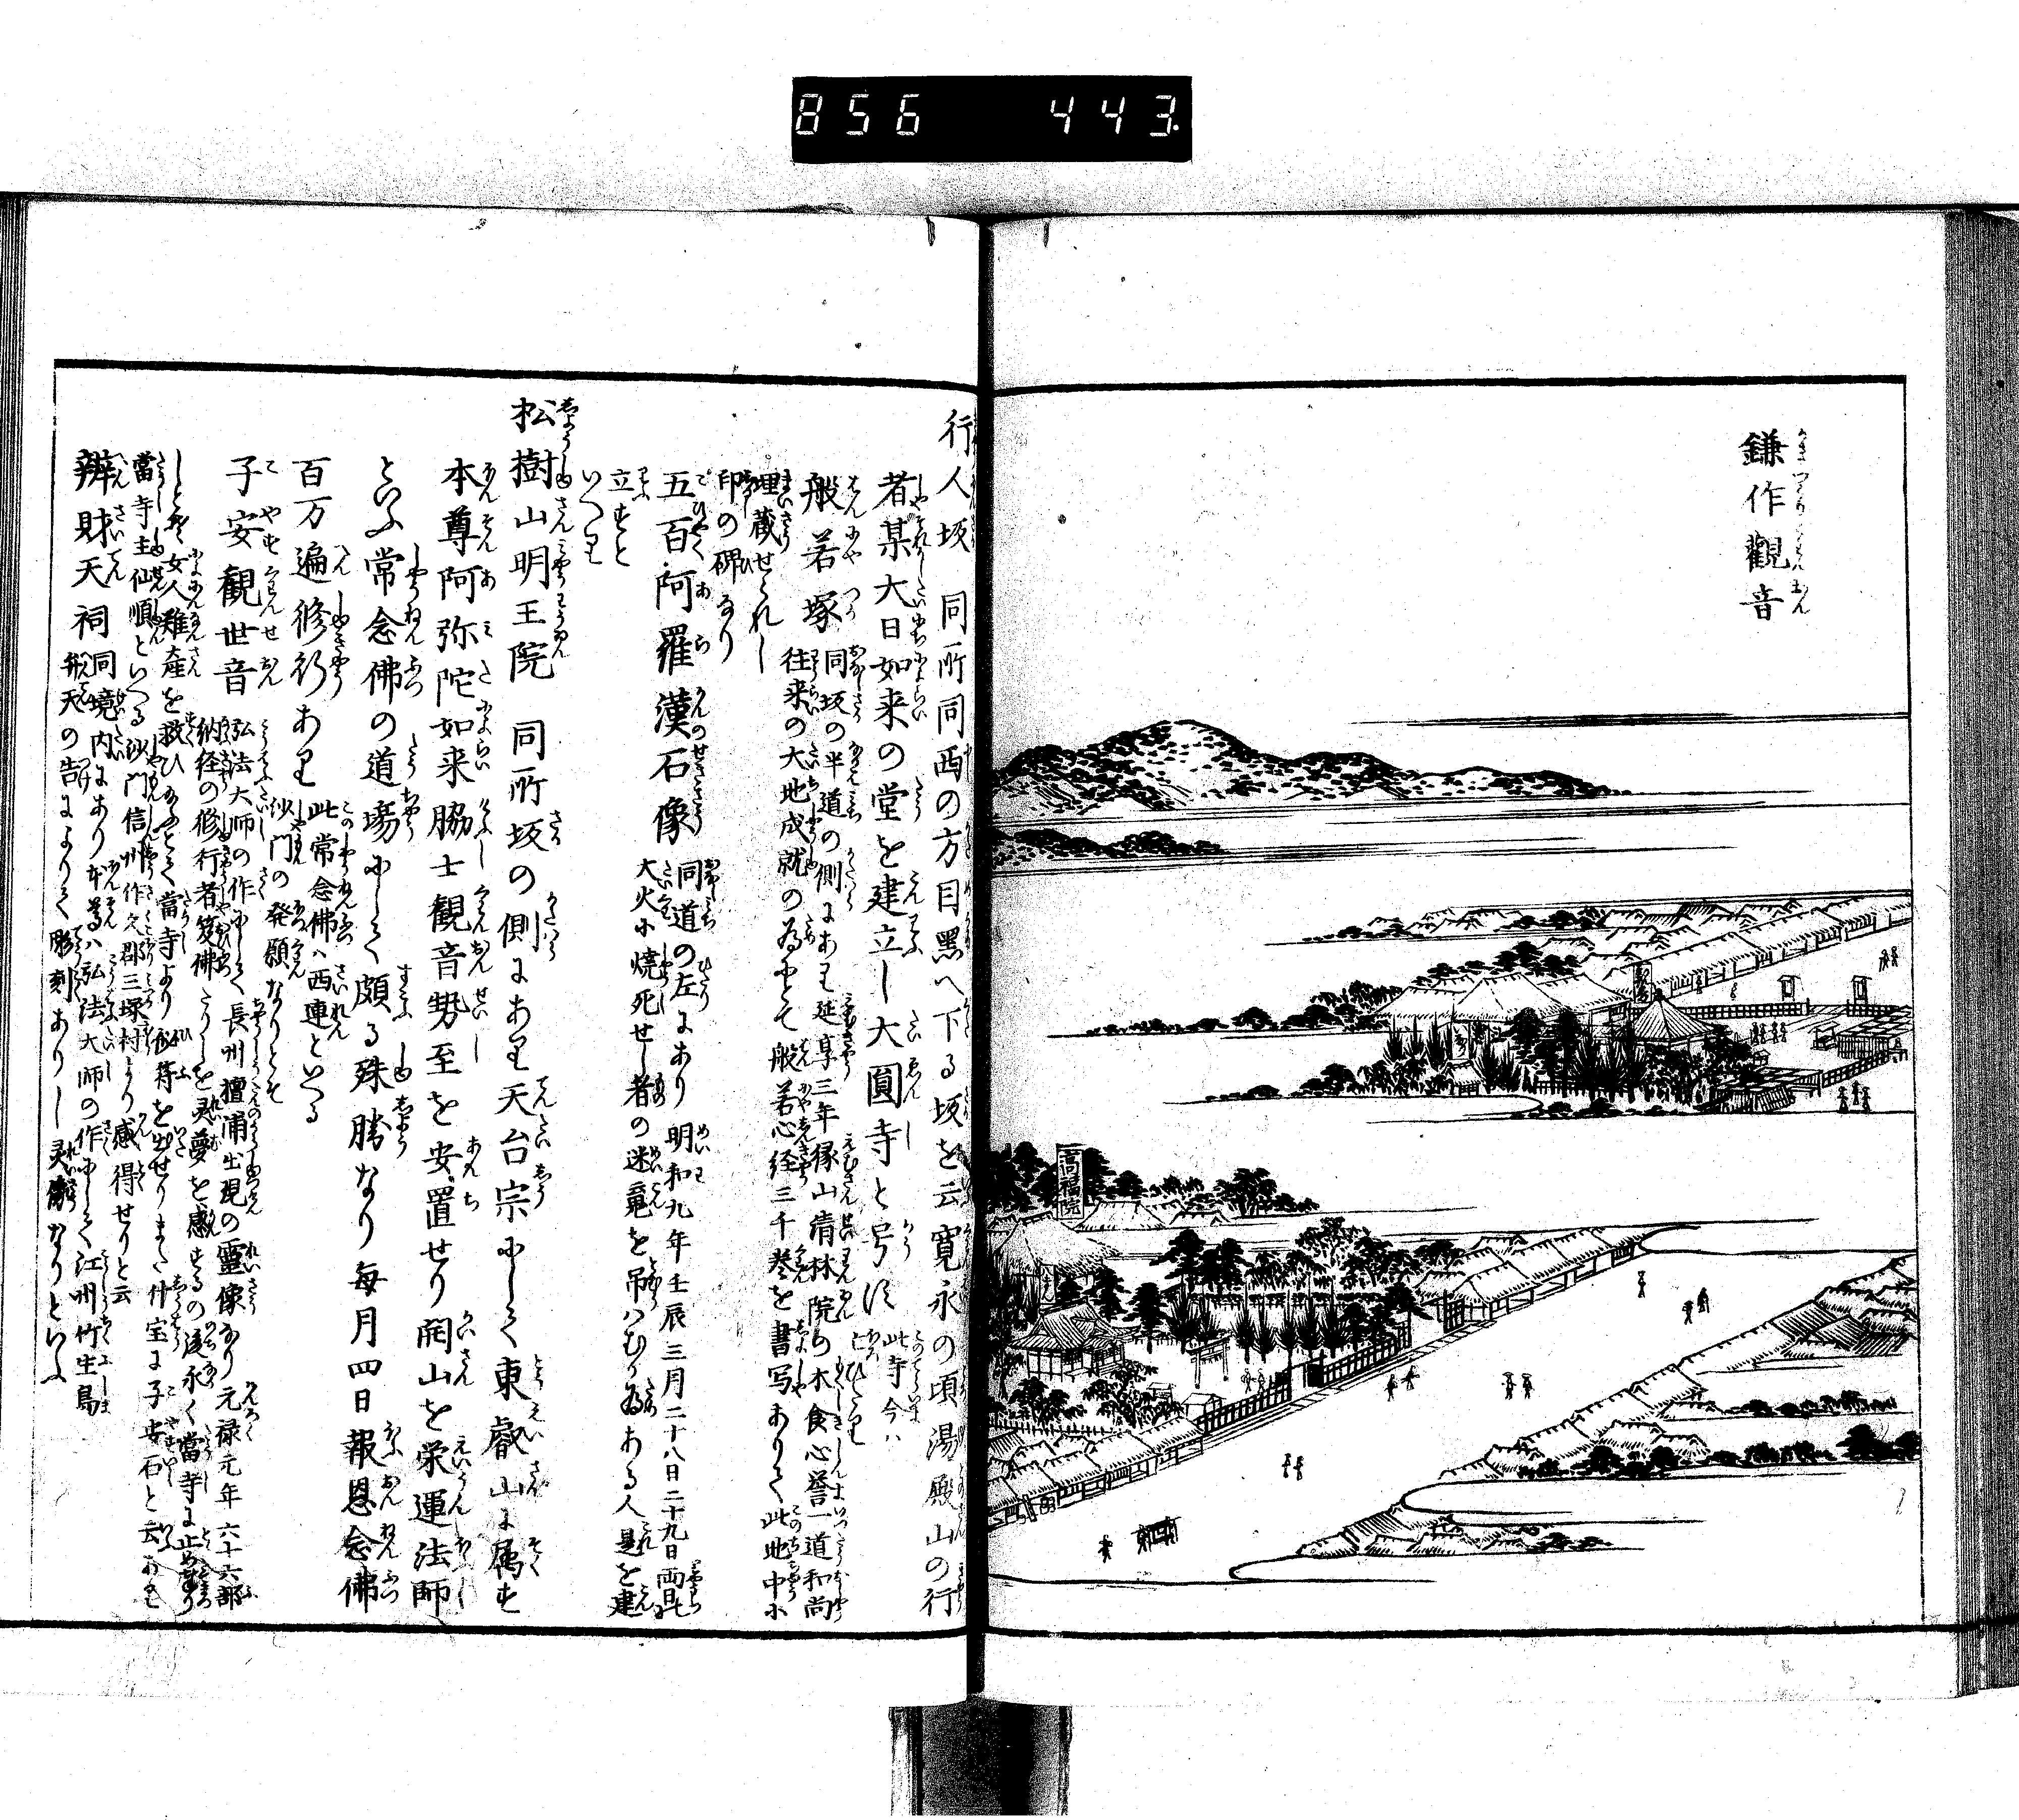 856 443.
鎌作觀音
高福院
行人坂 同所同西の方目黒へ下る坂を云寛永の頃湯殿山の行
者某大日如来の堂を建立し大圓寺と号す 此寺今ハ
亡ひたり
般若塚 同坂の半道の側にあり延享三年縁山清林院の木食心誉一道和尚
往来の大地成就の為にとて般若心経三千巻を書写ありて此地中に
埋蔵せられし
印の碑なり
五百阿羅漢石像 同道の左にあり明和九年壬辰三月二十八日二十九日両日
大火に焼死せし者の迷竜を吊ハむか為ある人是を建
立すと
いへり
松樹山明王院 同所坂の側にあり天台宗にして東叡山に属す
本尊阿弥陀如来脇士観音勢至を安置せり開山を栄運法師
といふ常念佛の道場にして頗る殊勝なり毎月四日報恩念佛
百万遍修行あり 此常念佛ハ西運といへる
沙門の発願なりとそ
子安観世音 弘法大師の作にして長州檀浦出現の靈像なり元禄元年六十六部
納経の修行者笈佛たりしを灵夢を感するの後永く當寺に止め
女人難産を救ひ 當寺より 符を出せりまた什宝に子安石と云あり
當寺主仙順といへる沙門信州作久郡三塚村より感得せりと云
辨財天祠 同境内にあり本尊ハ弘法大師の作にして江州竹生島
弁天の告によりて彫刻ありし灵像なりといふ